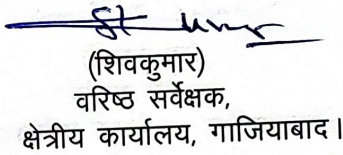 (शिवकुमार)
वरिष्ठ सर्वेक्षक,
क्षेत्रीय कार्यालय, गाजियाबाद।